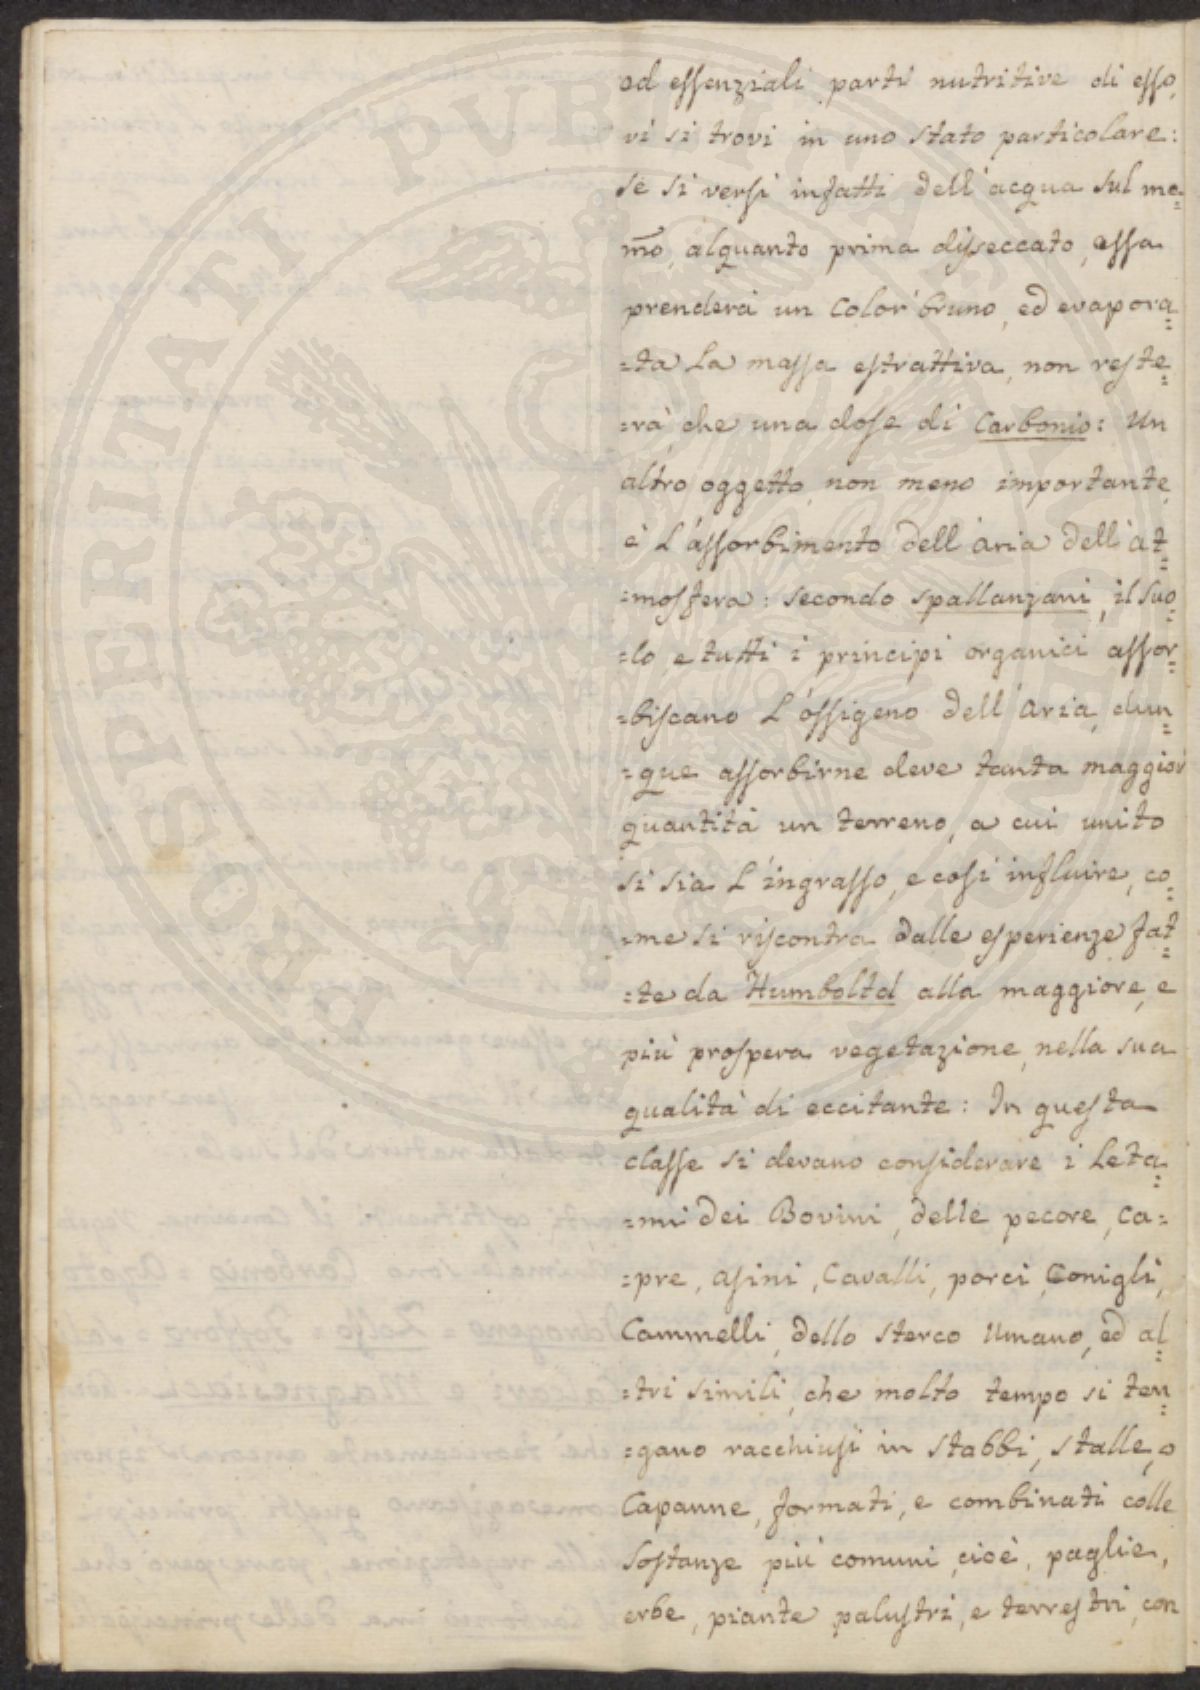 ed essenziali parti nutritive di esso,
vi si trovi in uno stato particolare:
se si versi infatti dell'acqua sul me=
m̃o, alquanto prima disseccato, essa
prenderà un color bruno, ed evapora=
=ta La massa estrattiva, non reste=
=rà che una dose di Carbonio: Un
altro oggetto non meno importante,
è L'assorbimento dell'aria dell'at=
=mosfera: secondo Spallanzani, il suo=
=lo e tutti i principi organici assor=
=biscano L'ossigeno dell'aria, dun=
=que assorbirne deve tanta maggior
quantità un terreno, a cui unito
si sia L'ingrasso, e così influire, co=
=me si riscontra dalle esperienze fat=
=te da Humboltd alla maggiore, e
più prospera vegetazione, nella sua
qualità di eccitante: In questa
classe si devano considerare i Leta=
=mi dei Bovini, delle pecore, ca=
=pre, asini, Cavalli, porci, Conigli,
Cammelli, dello sterco Umano, ed al=
=tri simili, che molto tempo si ten=
=gano racchiusi in stabbi, stalle, o
Capanne, formati, e combinati colle
sostanze più comuni, cioè, paglie,
erbe, piante palustri, e terrestri, con
PROSPERITATI PUBLICAE